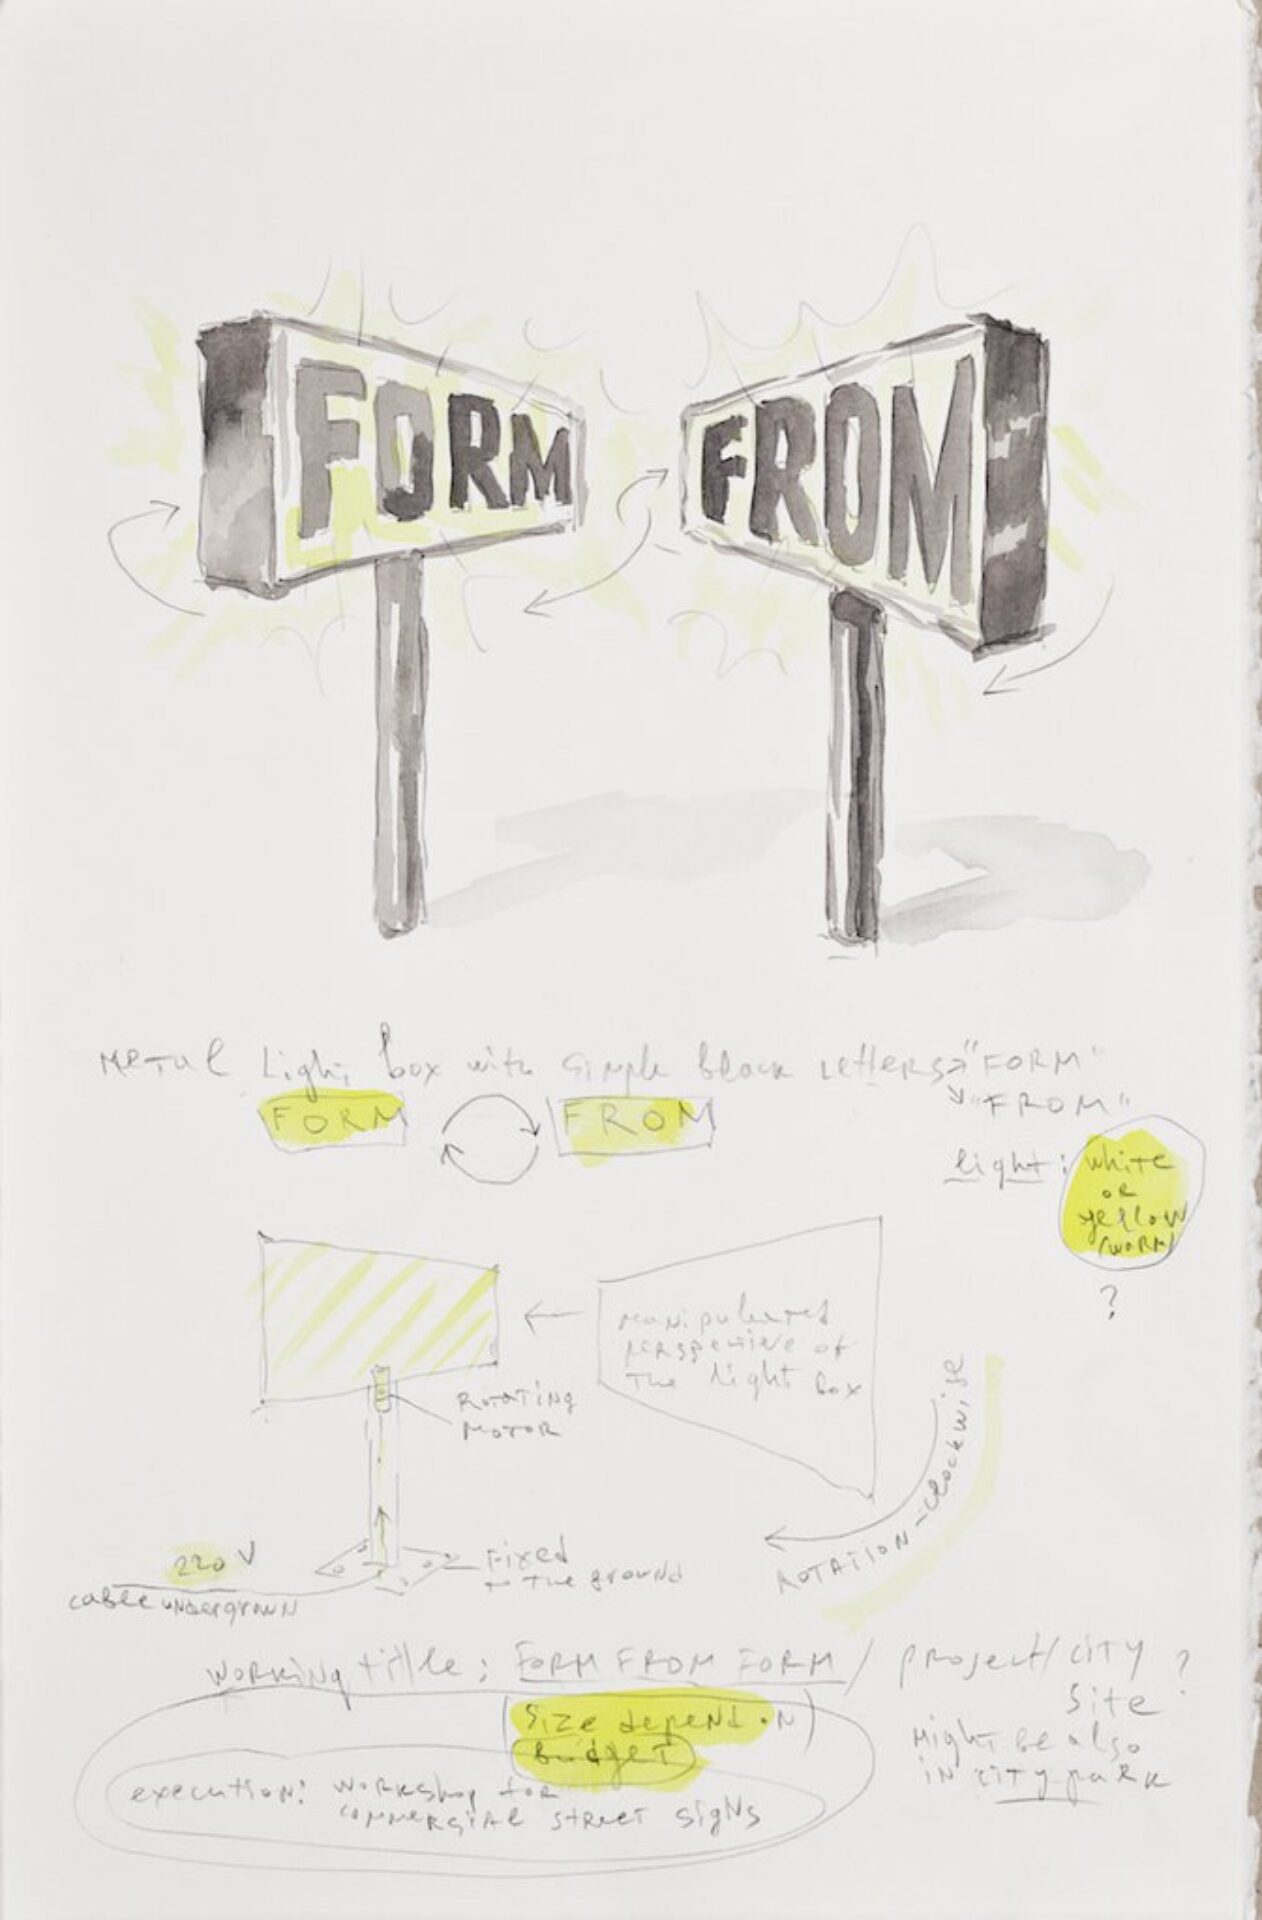 FORM
FROM
METAL Light box with simple black Letters → "FORM"
↘ "FROM"
FORM
FROM
light: white
or
yellow
(WORM)
?
manipulated
perspective of
the light box
ROTATING
MOTOR
ROTATION - clockwise
220 V
cable undergrown
Fixed
to the ground
WORKING title: FORM FROM FORM / project/CITY
site ?
(Size depend on)
budget
Might be also
in CITY paRK
execution: WORKshop for
commersial street signs